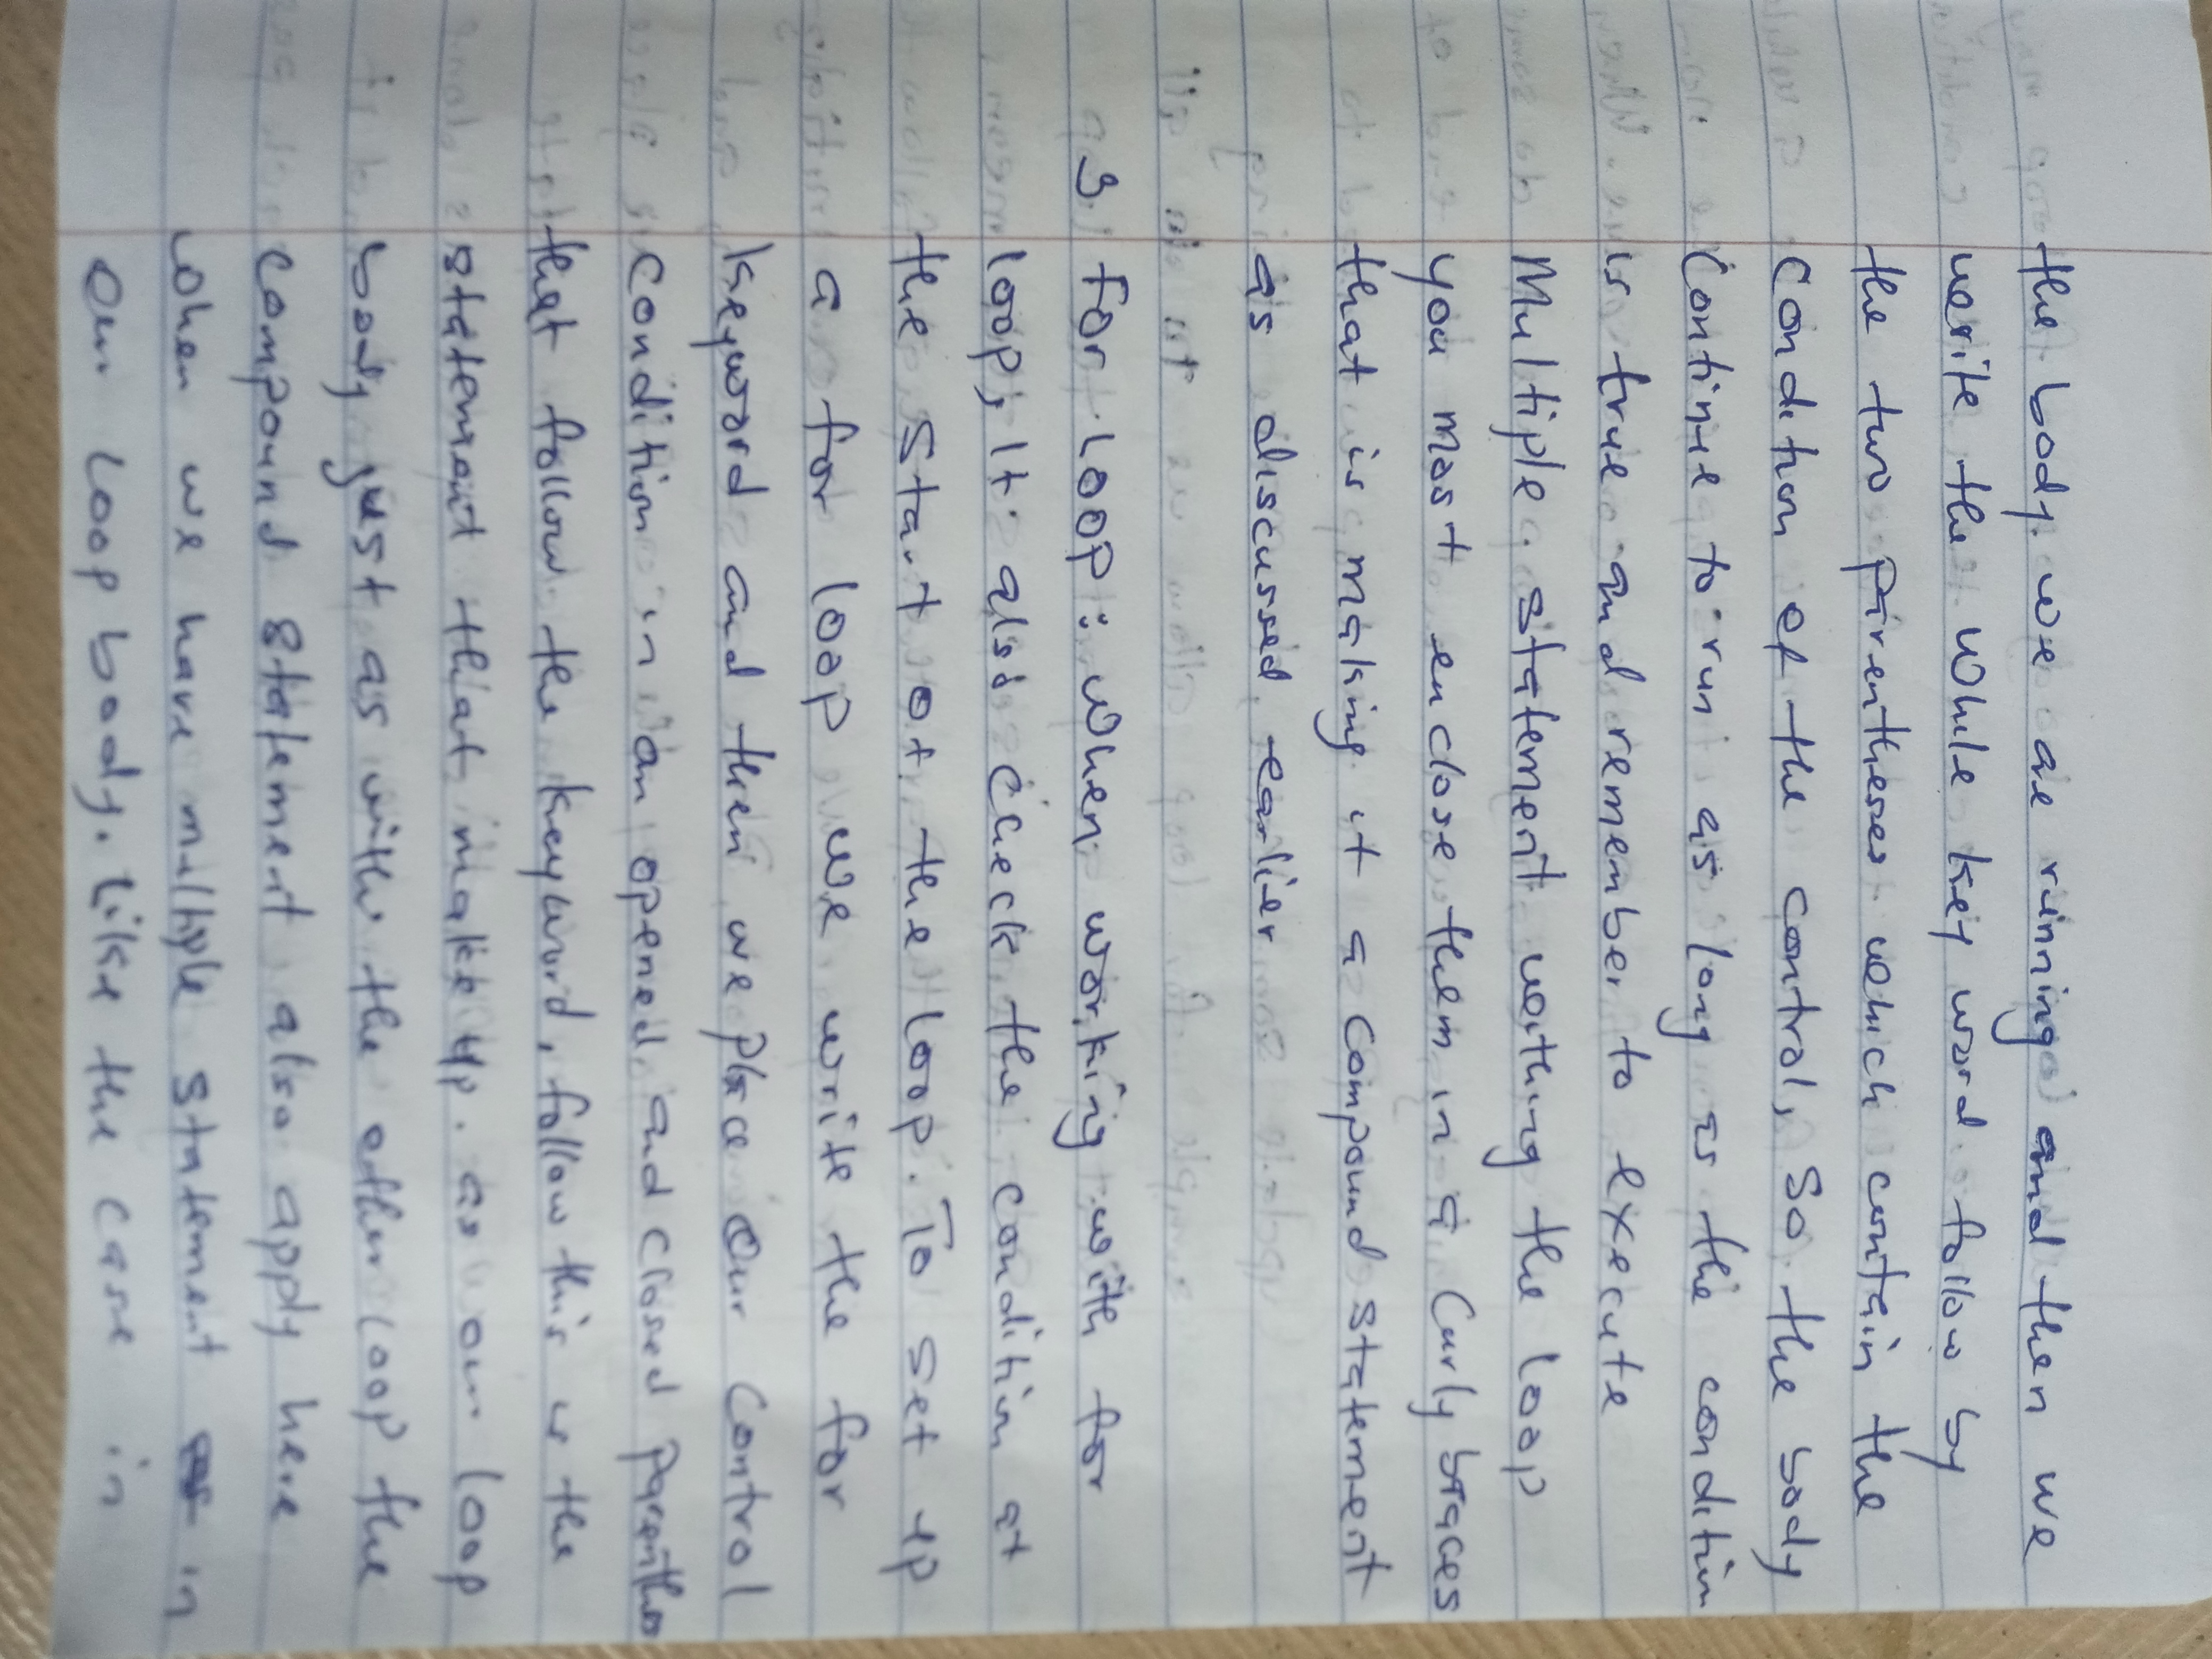 the body. we are rinning and then we
write the while key word follow by
the two pirentheses which contain the
condition of the control, So the body
Continue to run as long as the condition
is true and remember to execute
Multiple statement withing the loop
you most enclose them in a Curly braces
that is making it a compound statement
as discussed earlier
3. for loop: when working with for
loop, It also check the condition at
the start of the loop. To set up
a for loop we write the for
keyword and then we place our control
condition in an opened and closed parenthes
that follow the keyword, follow this is the
statement that make up. as our loop
body just as with the other loop the
compound statement also apply here
when we have multiple statement in
our loop body. Like the case in